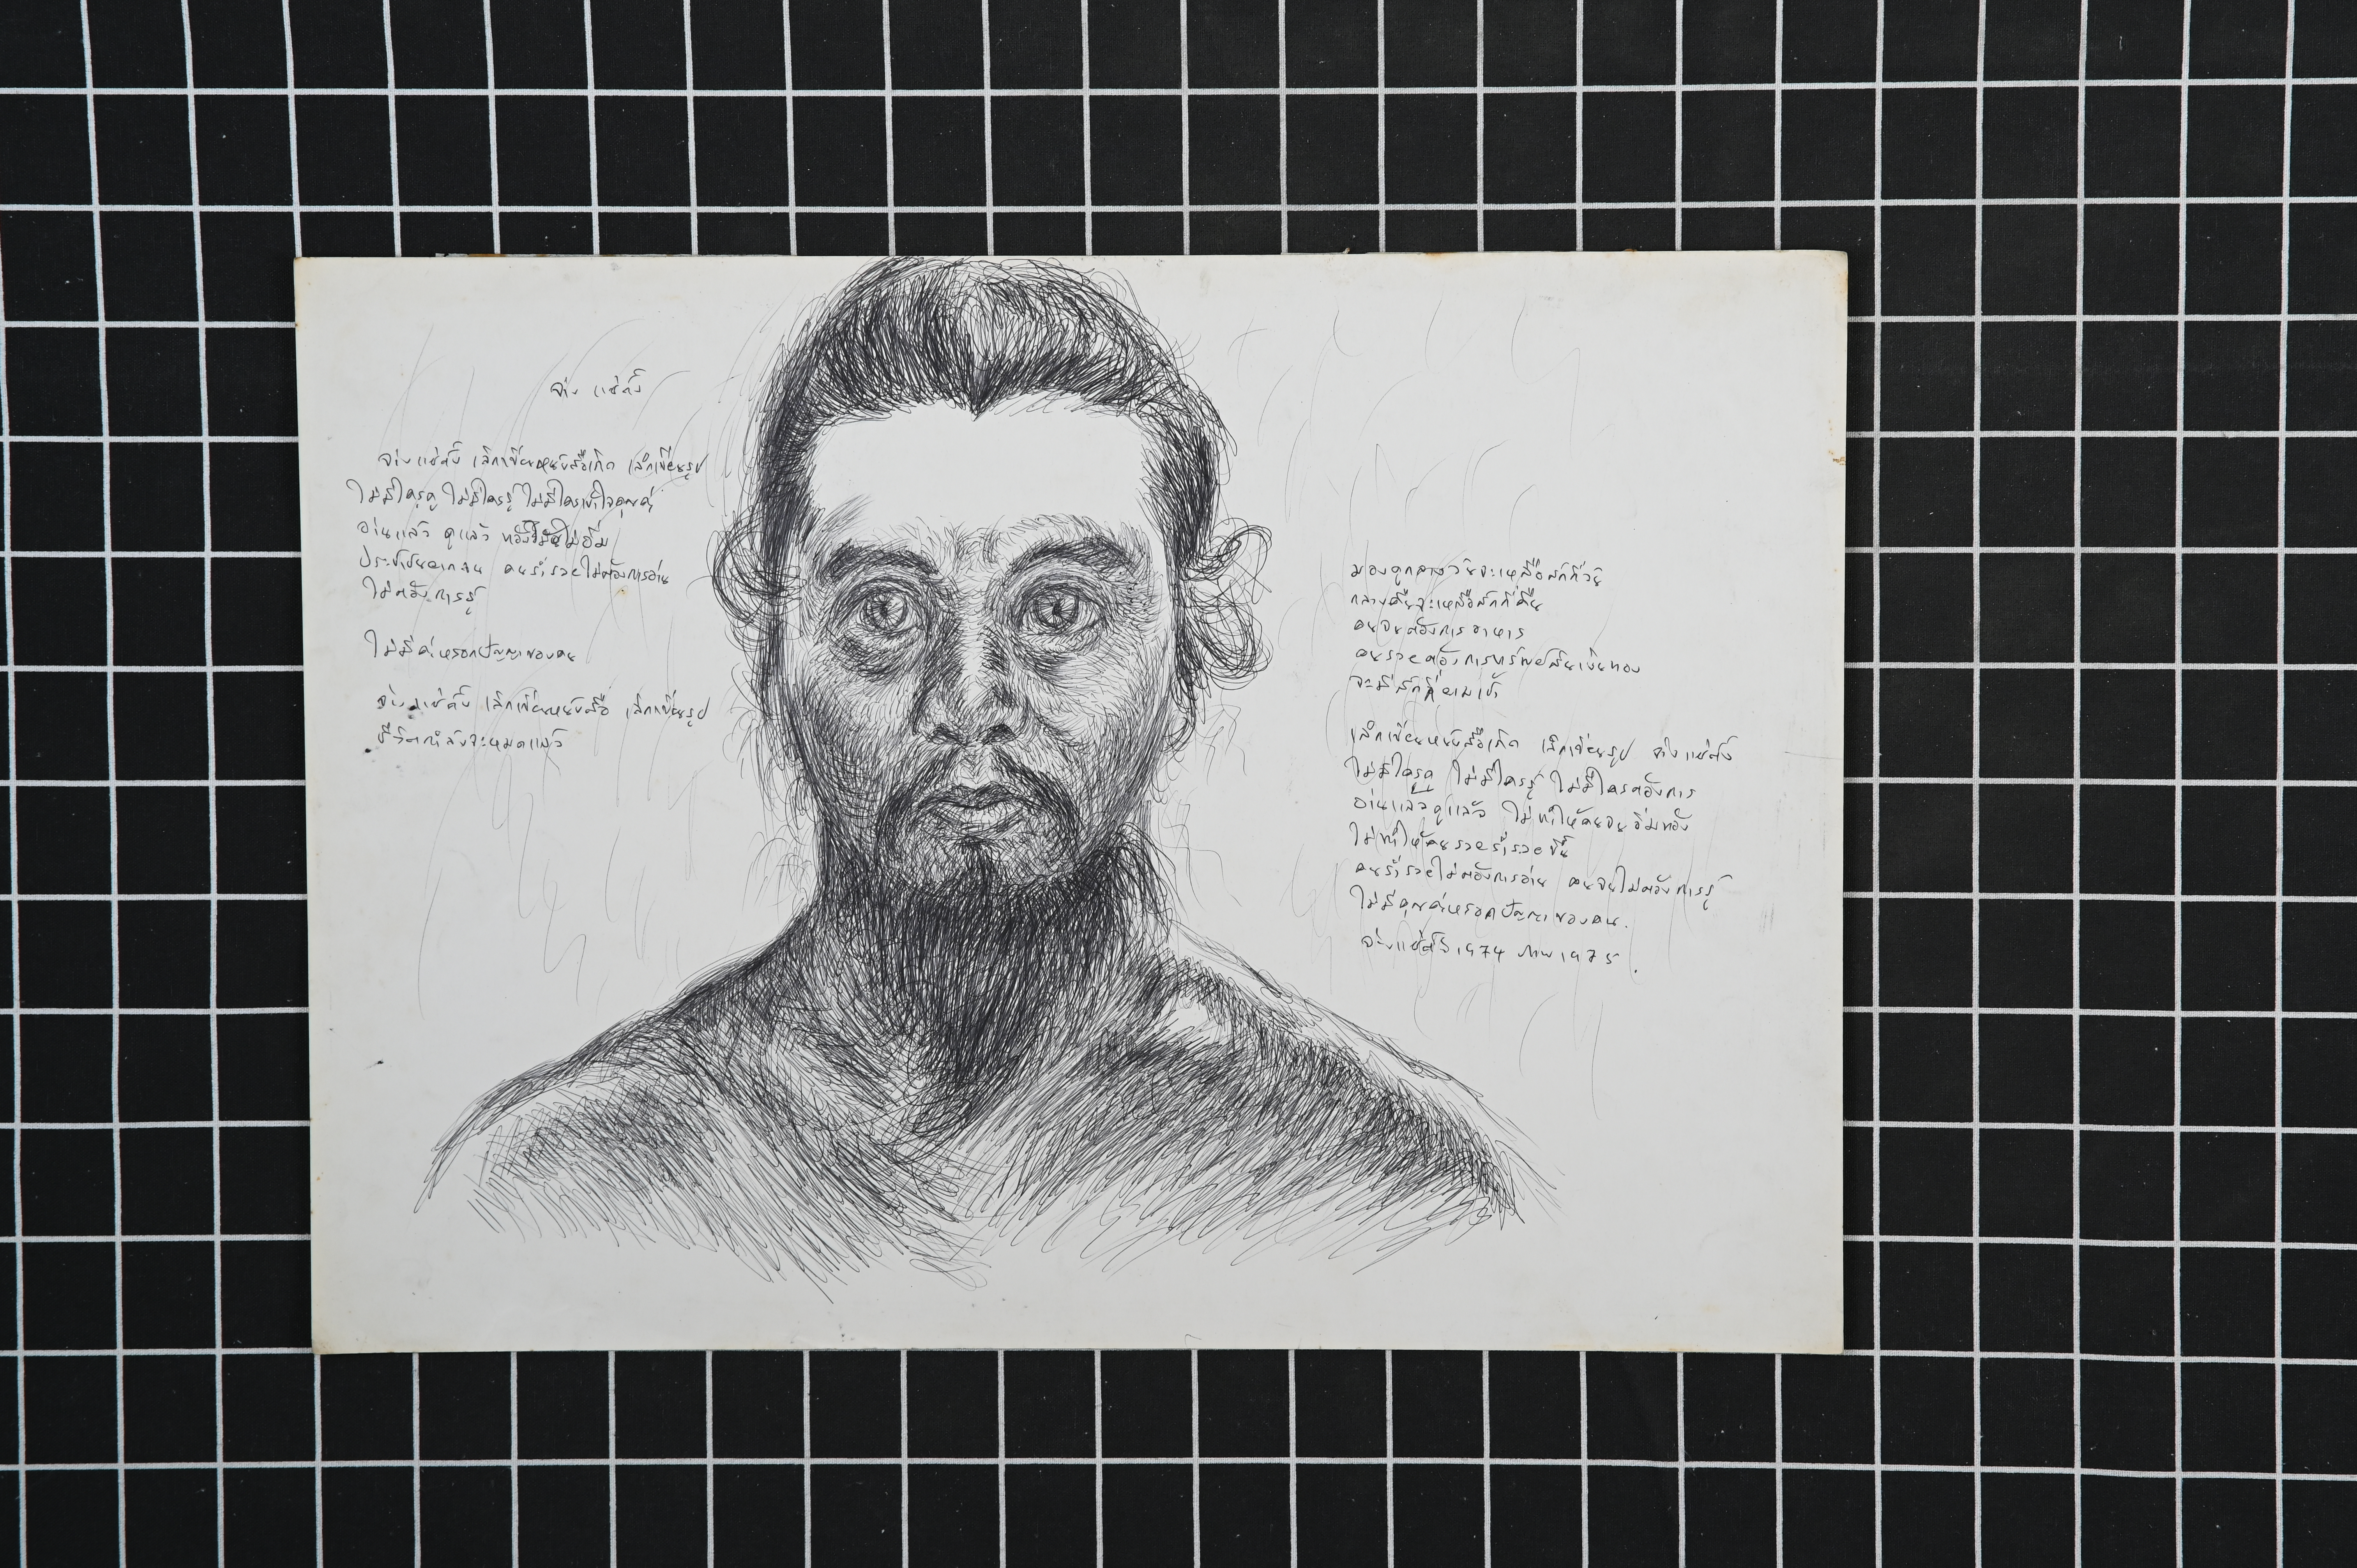 จ่าง แซ่ตั้ง
จ่างแซ่ตั้ง เลิกเขียนหนังสือเถิด เลิกเขียนรูป
ไม่มีใครดู ไม่มีใครรู้ ไม่มีใครเข้าใจคุณค่า
อ่านแล้ว ดูแล้ว ท้องไม่อิ่ม
ประชาชนยากจน คนร่ำรวยไม่ต้องการอ่าน
ไม่ต้องการรู้
ไม่มีค่าหรอกปัญญาของคน
จ่างแซ่ตั้ง เลิกเขียนหนังสือ เลิกเขียนรูป
ชีวิตกำลังจะหมดแล้ว
มองดูกลางวันจะเหลือสักกี่วัน
กลางคืนจะเหลือสักกี่คืน
คนจนต้องการอาหาร
คนรวยต้องการทรัพย์สินเงินทอง
จะมีสักกี่ยามเช้า
เลิกเขียนหนังสือเถิด เลิกเขียนรูป จ่างแซ่ตั้ง
ไม่มีใครดู ไม่มีใครรู้ ไม่มีใครต้องการ
อ่านแล้วดูแล้ว ไม่ทำให้คนจนอิ่มท้อง
ไม่ทำให้คนรวยร่ำรวยขึ้น
คนร่ำรวยไม่ต้องการอ่าน คนจนไม่ต้องการรู้
ไม่มีคุณค่าหรอกปัญญาของคน.
จ่างแซ่ตั้ง 1974 ภาพ 1975.